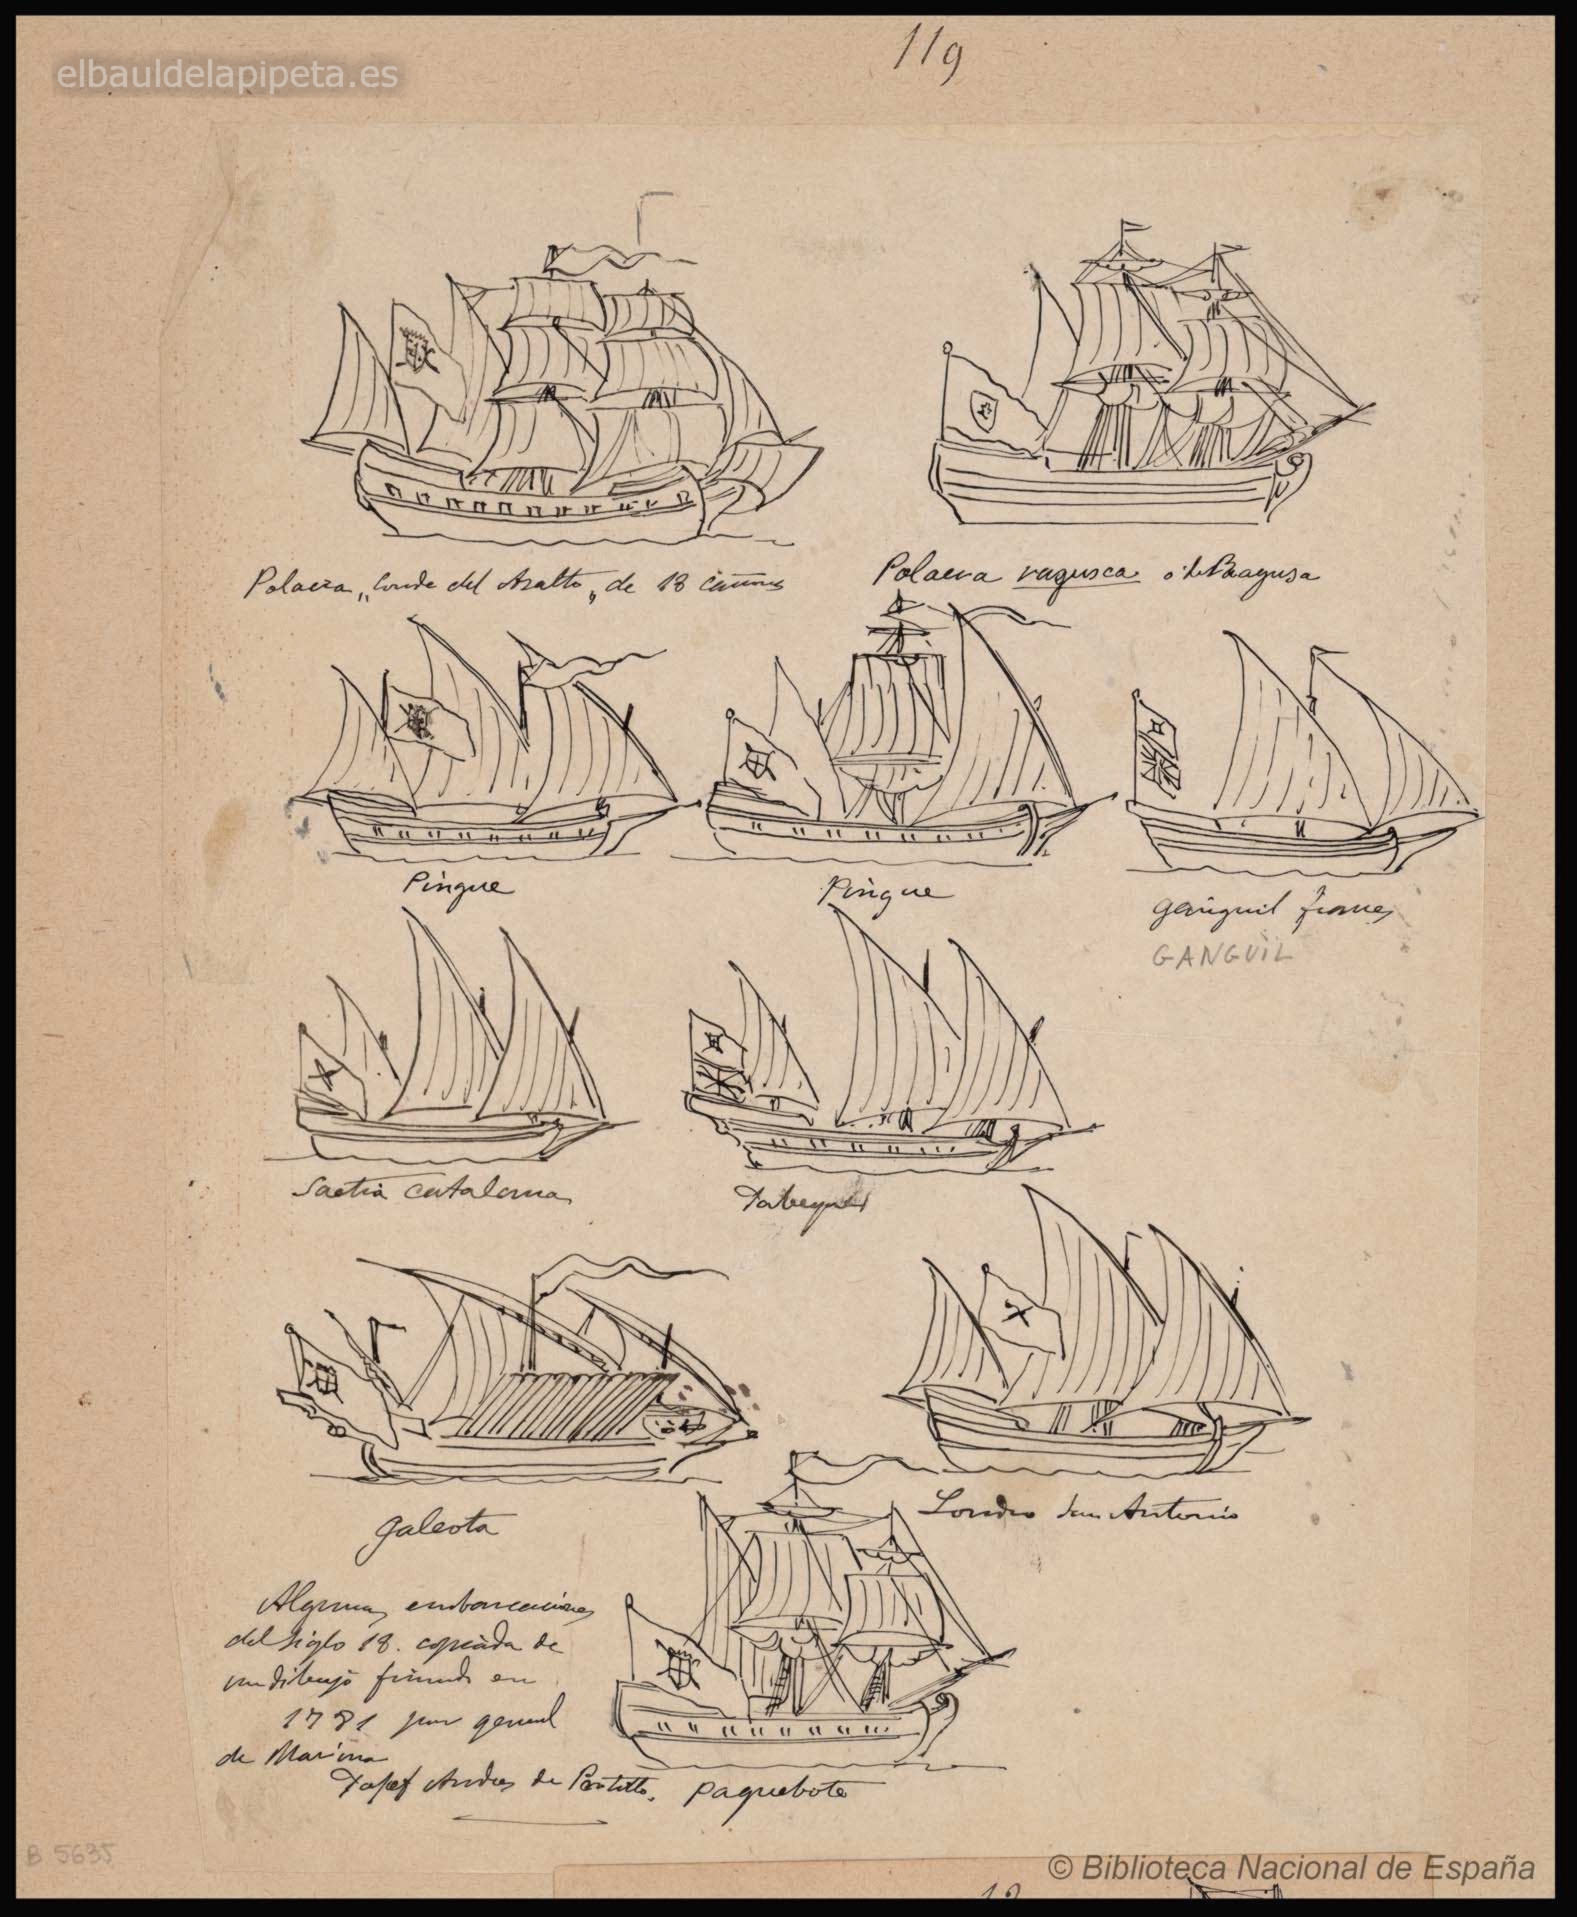 119
elbauldelapipeta.es
Polacra "Conde del Asalto" de 18 cañones
Polacra ragusea ó de Ragusa
Pingue
Pingue
ganguil frances
GANGUIL
Saetia catalana
Jabeque
galeota
Londro San Antonio
Algunas embarcaciones
del siglo 18. copiada de
un dibujo firmado en
1781 por general
de Marina
Josef Andres de Portillo.
paquebote
B 5635
© Biblioteca Nacional de España